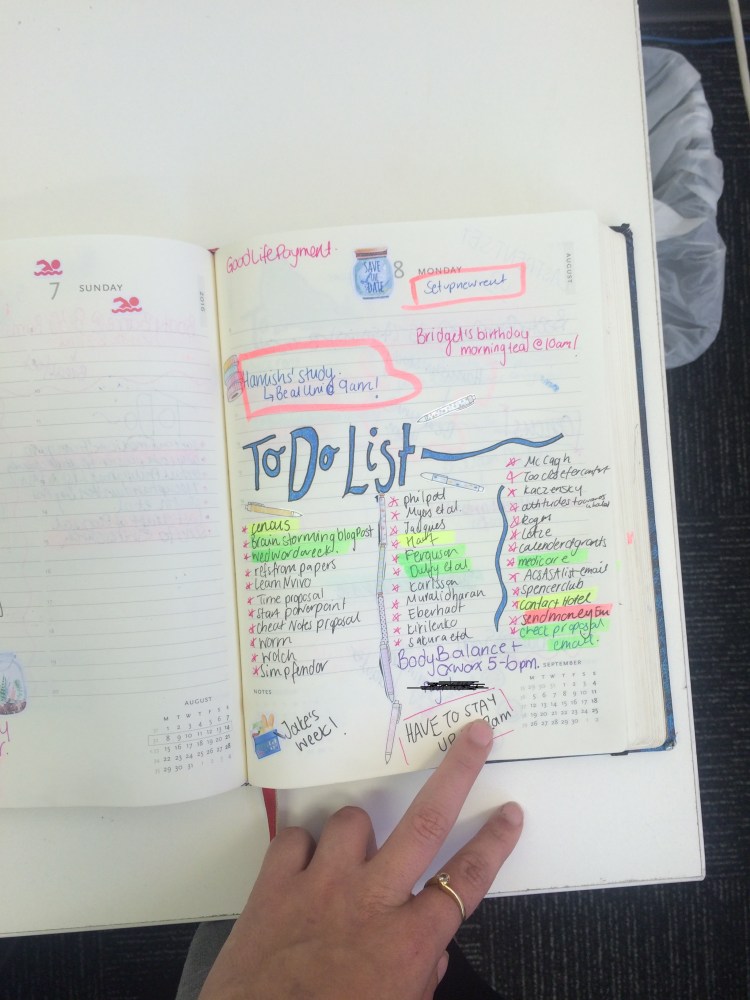 7 SUNDAY
2016
AUGUST
M T W T F S S
1 2 3 4 5 6 7
8 9 10 11 12 13 14
15 16 17 18 19 20 21
22 23 24 25 26 27 28
29 30 31
GoodLifePayment.
SAVE
the
DATE
8 MONDAY
AUGUST
Setupnewrent
Bridget's birthday
morningtea @10am!
Hamishs' study.
↳Be at Uni @ 9am!
To Do List
cencus
Brainstorming blog Post
wedwordweek!
refs from papers
Learn Nvivo
Time proposal
Start powerpoint
cheat Notes proposal
worm
Walch
Simpfendor
philpott
Myers et al.
Jacques
Hart
Ferguson
Duffy et al
Karlsson
Muralidharan
Eberhadt
Lirilenko
Sakura etd
McCagh
Too close for comfort
Kaczensky
attitudes
Rogers
Lotie
calenderofgrants
medicare
ACSASA list-email
spencerclub
contact Hotel
send money Em
check proposal
email.
BodyBalance +
5-6pm.
NOTES
Jake's
week!
HAVE TO STAY
UP
am
SEPTEMBER
M T W T F S S